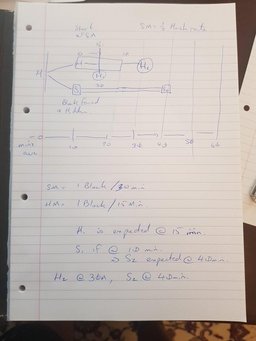 Start
SM = 1/2 Hash rate
H
H
H₂
S₁
S₂
Block found
0
10
20
30
40
50
60
mins
SM = 1 Block / 30 min
HM = 1 Block / 15 Min.
H₁ is expected @ 15 min.
S₁ if @ 10 min.
⇒ S₂ expected @ 40 min.
H₂ @ 30m, S₂ @ 40 min.